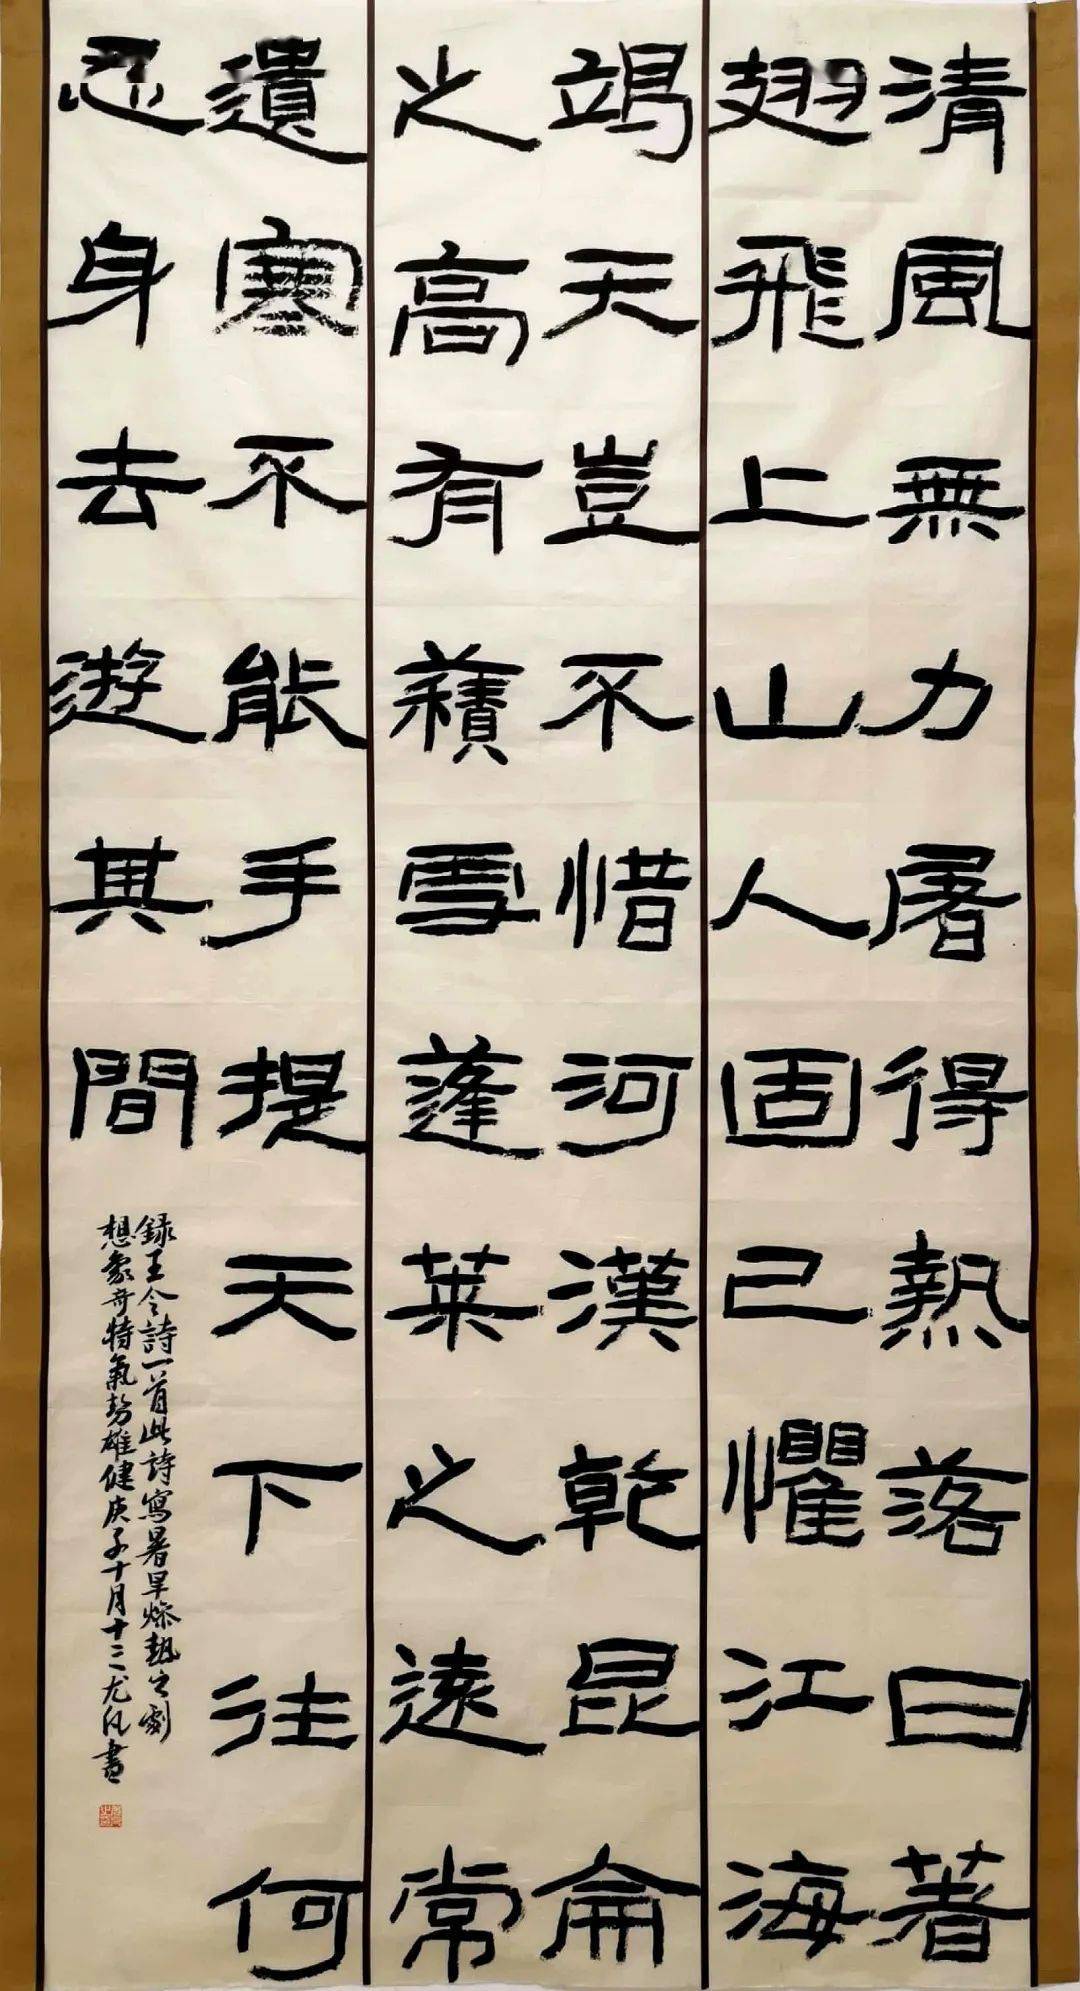 清風無力屠得熱落日著
翅飛上山人固已懼江海
竭天豈不惜河漢乾昆侖
之高有積雪蓬萊之遠常
遺寒不能手提天下往何
忍身去遊其間
錄王令詩一首此詩寫暑旱燥熱之劇
想象奇特氣勢雄健庚子十月十二尤凡書